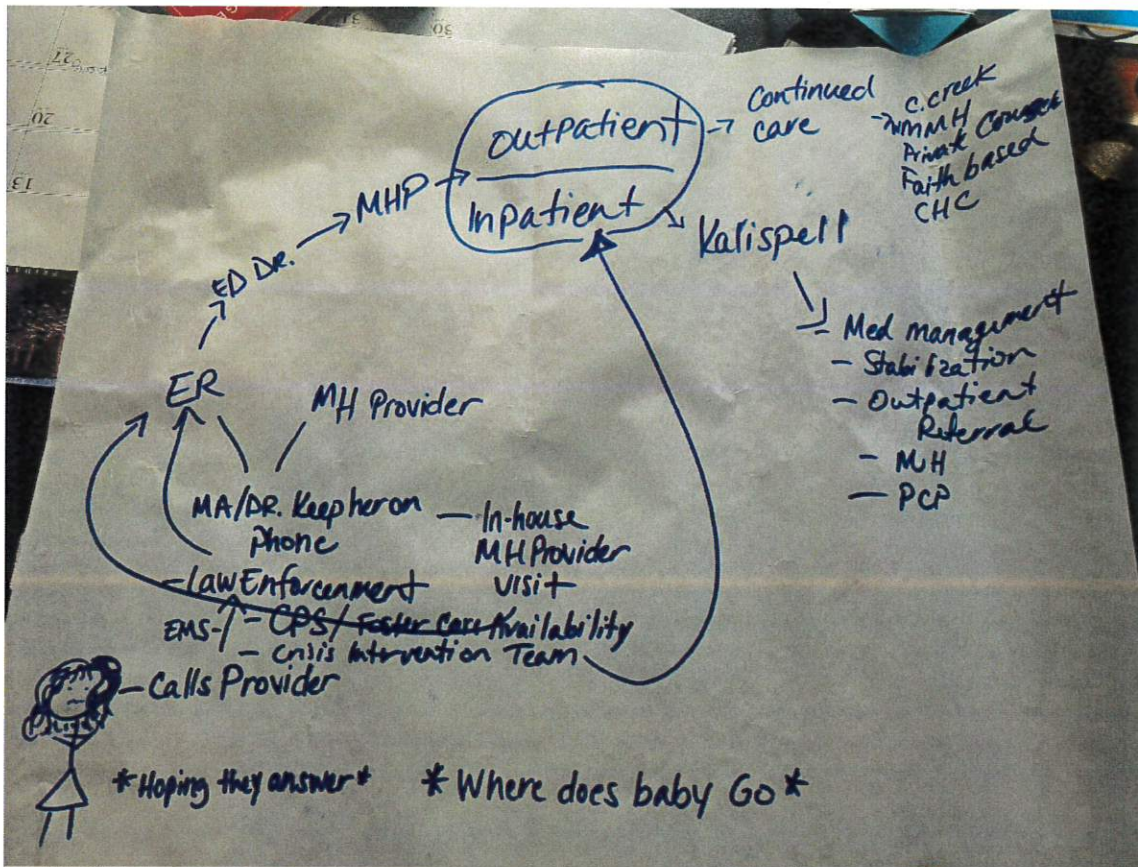 30
31
27
20
13
Outpatient
Inpatient
→ Continued
care
→ C.Creek
WMMH
Private Couns
Faith based
CHC
MHP →
Kalispell
ED DR.
- Med management
- Stabilization
- Outpatient
Referral
- MH
- PCP
ER
MH Provider
MA/DR. Keep her on
Phone
- In-house
MH Provider
visit
- Law Enforcenment
EMS - CPS / Foster Care Availability
- Crisis Intervention Team
- Calls Provider
*Hoping they answer*
*Where does baby Go*